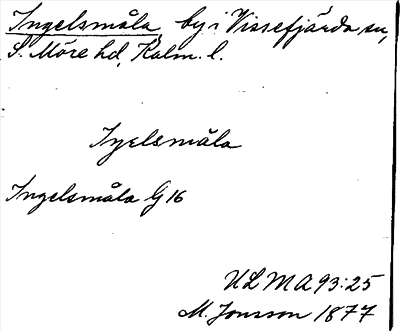 Ingelsmåla, by i Vissefjärda sn,
S. Möre hd, Kalm. l.
Iyelsmåla
Ingelsmåla G 16
ULMA 93:25
M. Jonsson 1877